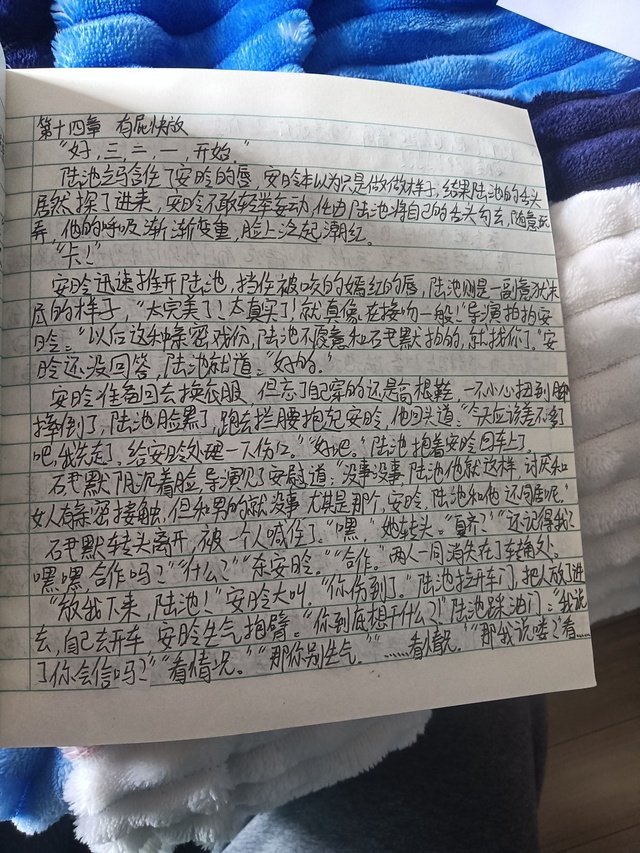 第十四章 有屁快放
“好,三,二,一,开始。”
陆池立马含住了安昤的唇,安昤本以为只是做做样子,结果陆池的舌头
居然探了进来,安昤不敢轻举妄动,任由陆池将自己的舌头勾去,随意玩
弄,他的呼吸渐渐变重,脸上泛起潮红。
“卡!”
安昤迅速推开陆池,挡住被咬的嫣红的唇,陆池则是一副意犹未
尽的样子,“太完美了!太真实了!就真像在接吻一般!”导演拍拍安
昤:“以后这种亲密戏份,陆池不愿意和石尹默拍的,就找你了。”安
昤还没回答,陆池就道:“好的。”
安昤准备回去换衣服,但忘了自己穿的还是高根鞋,一不小心扭到脚
摔倒了,陆池脸黑了,跑去拦腰抱起安昤,他回头道:“今天应该差不多了
吧,我先走了,给安昤处理一下伤口。”“好吧。”陆池抱着安昤回车上了。
石尹默阴沉着脸,导演见了安慰道:“没事没事,陆池他就这样,讨厌和
女人有亲密接触,但和男的就没事,尤其是那个,安昤,陆池和他还同居呢。”
石尹默转头离开,被一个人喊住了。“嘿。”她转头。“夏齐?”“还记得我?
嘿嘿,合作吗?”“什么?”“东安昤。”“合作。”两人一同消失在了转角处。
“放我下来,陆池!”安昤大叫。“你伤到了。”陆池拉开车门,把人放了进
去,自己去开车,安昤生气抱臂。“你到底想干什么?”陆池踩油门:“我说
了你会信吗?”“看情况。”“那你别生气。”“……看情况。”“那我说喽?”看……